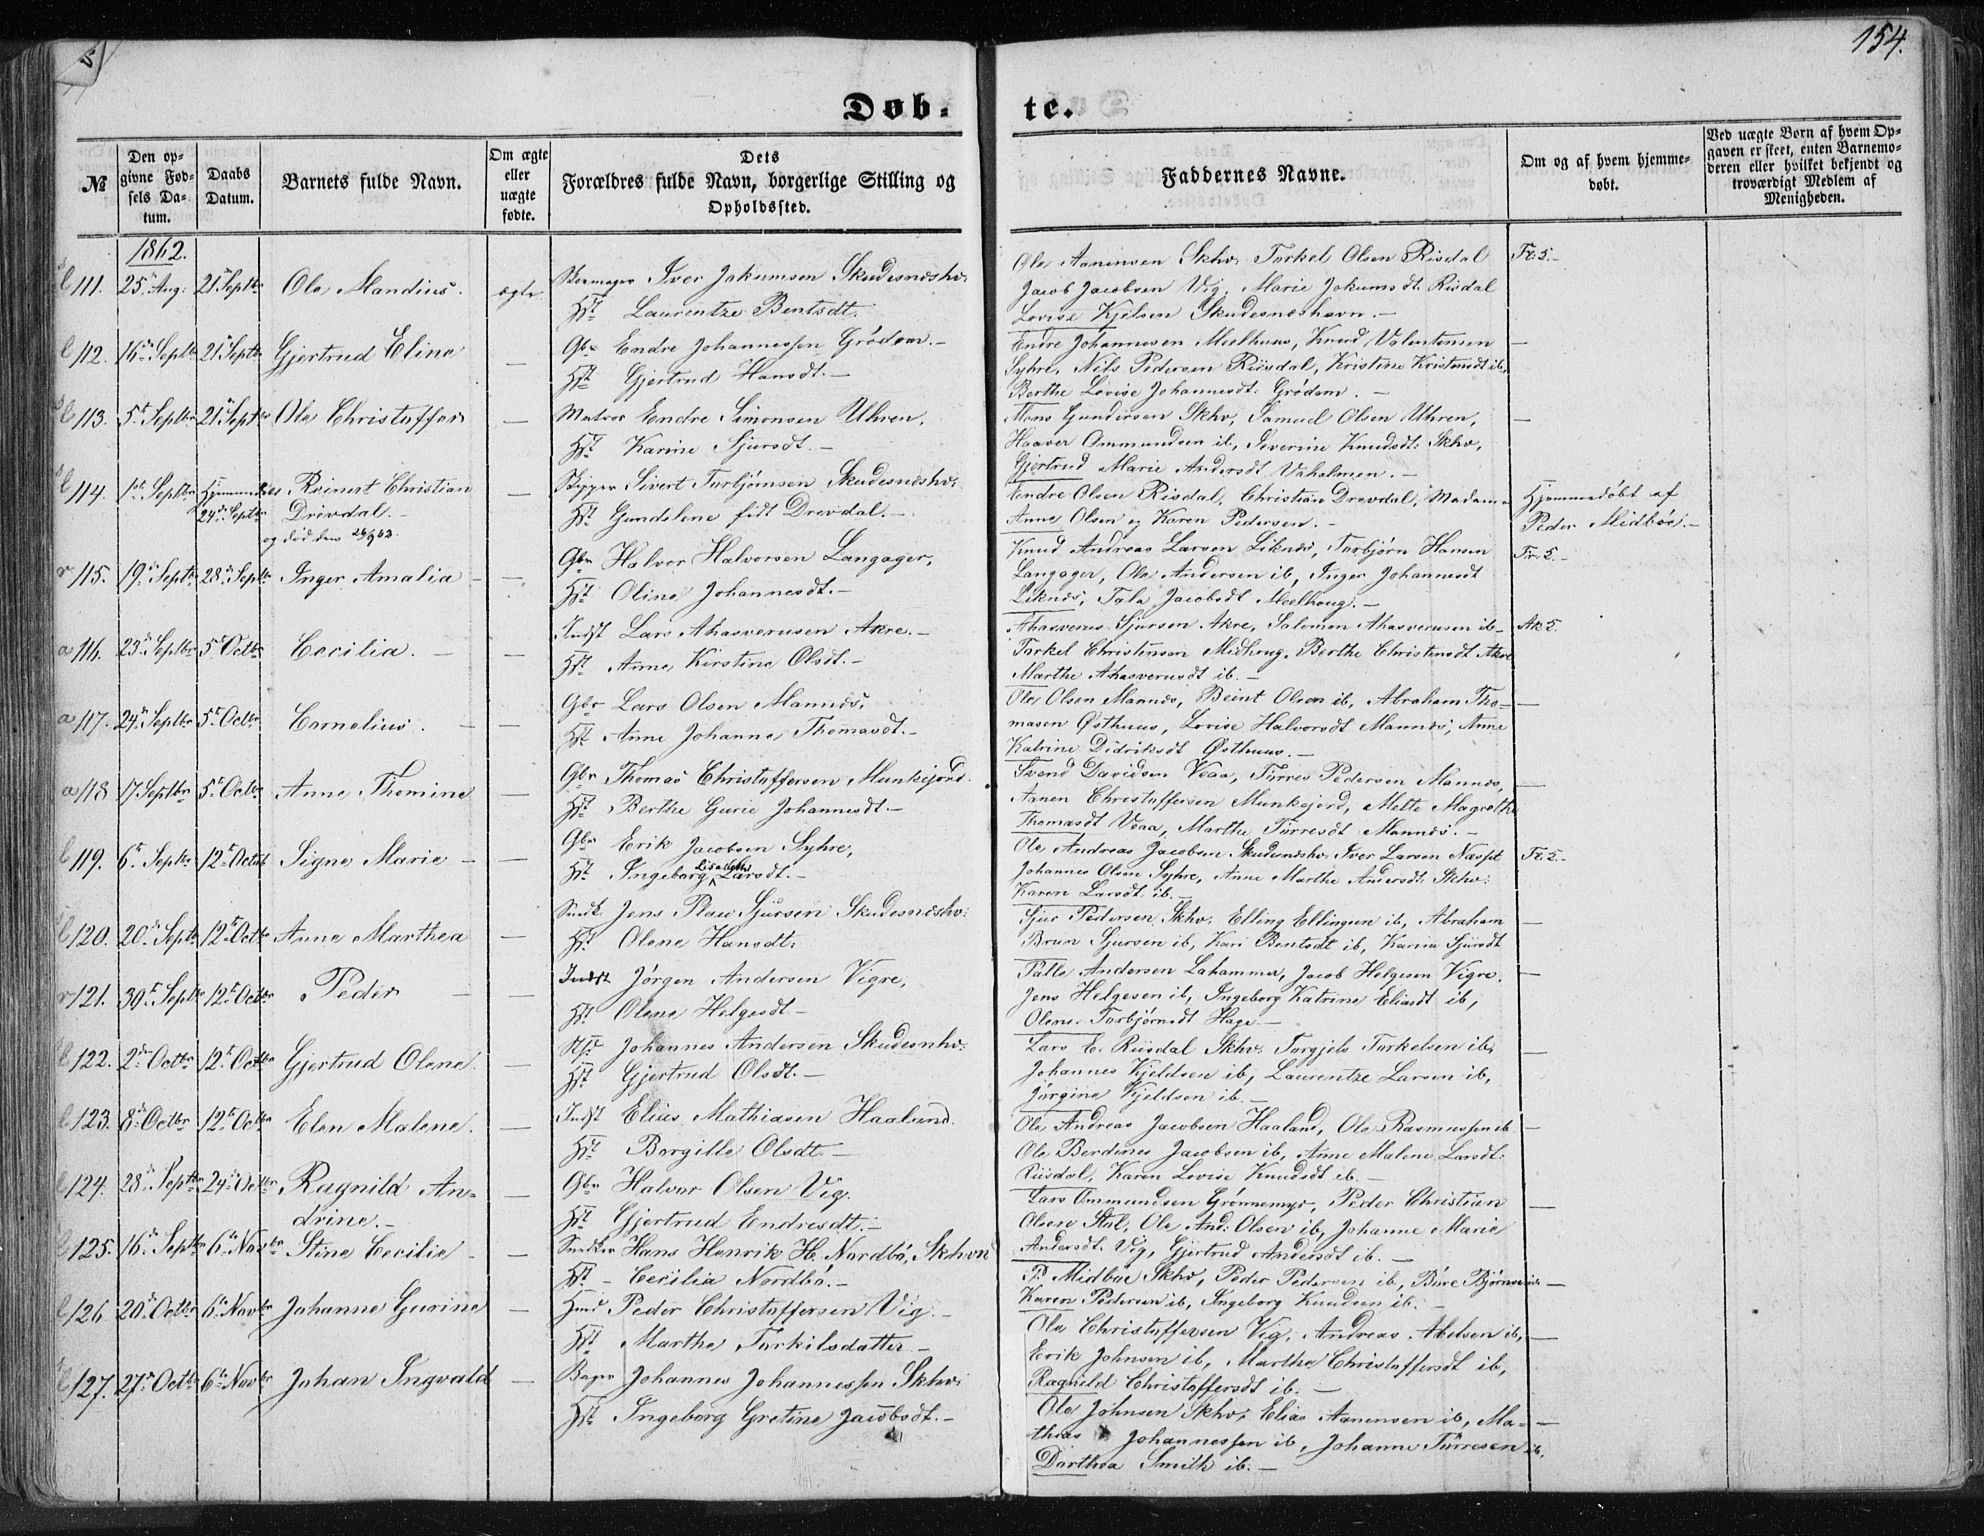 154.
Døb-
te.
№
Den op-
givne Fød-
sels Da-
tum.
Daabs
Datum.
Barnets fulde Navn.
Om ægte
eller
uægte
fødte.
Dets
Forældres fulde Navn, borgerlige Stilling og
Opholdssted.
Faddernes Navne.
Om og af hvem hjemme-
døbt.
Ved uægte Børn af hvem Op-
gaven er skeet, enten Barnemo-
deren eller hvilket bekjendt og
troværdigt Medlem af
Menigheden.
1862.
111. 25 Aug: 21 Septbr Ole Mandius. ægte
Iver Jakumsen Skudesneshv:
Hst Laurentze Bentsdt.
Ole Aanensen Skhv: Torkel Olsen Risdal
Jacob Jacobsen Vig, Marie Jokumsdt. Risdal
Lovise Kjelsen Skudesneshavn.-
Fr. 5.-
112. 16 Septbr 21 Septbr Gjertrud Eline —
Gbr Endre Johannessen Grødem.-
Hst Gjertrud Hansdt.-
Endre Johannesen Meelhuus, Knud Valentinsen —
Syhre, Nils Pedersen Riisdal, Kristine Kristensdt ib,
Berthe Lovise Johannesdt. Grødem.-
113. 5t Septbr 21 Septbr Ole Christoffer —
Matros Endre Simonsen Uhren,
Hst Karine Sjursdt.-
Mons Gundersen Skhv, Samuel Olsen Uhren, —
Haaver Ommundsen ib, Severine Knudsdt: Skhv,
Gjertrud Marie Andersdt Vaholmen.-
114. 1st Septbr Hjemmedøbt 24de Septbr Reinert Christian
Drevdal.-
og død den 26/9 62.
—
Skipper Sivert Torbjørnsen Skudesneshv:
Hst Gundelene født Drevdal.-
Endre Olsen Risdal, Christian Drevdal, Madame
Anne Olsen og Karen Pedersen.-
Hjemmedøbt af
Peder Midbøe.-
115. 19 Septbr 28 Septbr Inger Amalia —
Gbr Halvor Halvorsen Langager,
Hst Oline Johannesdt.-
Knud Andreas Larsen Liknes, Torbjørn Hansen
Langager, Ole Andersen ib, Inger Johannesdt
Liknes, Tala Jacobsdt Meelhoug.-
Fr. 5.-
a 116. 23 Septbr 5 Octbr Cecilia. —
Indst Lars Ahasverusen Akre.-
Hst Anne Kirstine Olsdt.-
Ahasverus Sjursen Akre, Salomon Ahasverusen ib-
Torkel Christensen Midhoug, Berthe Christensdt Akre
Marthe Ahasverusdt ib.-
Ak 5.
a 117. 24 Septbr 5t Octbr Cornelius. —
Gbr Lars Olsen Mannes,
Hst Anne Johanne Thomasdt.-
Ole Olsen Mannes, Beint Olsen ib, Abraham Tho- —
masen Østhuus, Lovise Halvorsdt Mannes, Anne
Katrine Didriksdt Østhuus.-
a 118 17 Septbr 5t Octbr Anne Thomine —
Gbr Thomas Christoffersen Munkejord.
Hst Berthe Gurie Johannesdt-
Svend Davidsen Veaa, Tørres Pedersen Mannes, —
Aanen Christoffersen Munkejord, Mette Magrethe
Thomasdt Veaa, Marthe Tørresdt Mannes.-
119. 6t Septbr 12t Octbr Signe Marie —
Gbr Erik Jacobsen Syhre,
Hst Ingeborg Lisabeth Larsdt.-
Ole Andreas Jacobsen Skudesneshv: Iver Larsen Næsset
Johannes Olsen Syhre, Anne Marthe Andersdt. Skhv:
Karen Larsdt ib.-
Fr. 2.-
120. 20 Septbr 12t Octbr Anne Marthea —
Snedk. Jens Plaw Sjursen Skudesneshv:
Hst Olene Hansdt:
Sjur Pedersen Skhv. Elling Ellingsen ib, Abraham —
Brun Sjursen ib, Kari Bentsdt ib, Karina Sjursdt
121. 30t Septbr 12t Octbr Peder —
Indst Jørgen Andersen Vigre,
Hst Olene Helgesdt-
Palle Andersen Lahammer, Jacob Helgesen Vigre. —
Jens Helgesen ib, Ingeborg Katrine Eliasdt ib,
Olene Torbjørnsdt Hage-
122. 2de Octbr 12t Octbr Gjertrud Olene. —
Johannes Andersen Skudesnhv:
Hst Gjertrud Olsdt.-
Lars E. Riisdal Skhv: Torgjels Torkelsen ib, —
Johannes Kjeldsen ib, Laurentze Larsen ib,
Jørgine Kjeldsen ib.-
123. 8 Octbr 12t Octbr Elen Malene. —
Indst Elias Mathiasen Haaland.
Hst Borgille Olsdt-
Ole Andreas Jacobsen Haaland, Ole Rasmussen ib —
Ole Berdines Jacobsen ib, Anne Malene Larsdt:
Riisdal, Karen Lovise Knudsdt ib.-
124. 28 Septbr 24 Octbr Ragnild An-
drine.-
—
Gbr Halvor Olsen Vig.
Hst Gjertrud Endresdt.-
Lars Ommundsen Grønnemyr, Peder Christian —
Olsen Stol, Ole And: Olsen ib, Johanne Marie
Andersdt. Vig, Gjertrud Andersdt ib.-
125. 16 Septbr 6 Novbr Stine Cecilie —
Snedker Hans Henrik H. Nordbø, Skhvn
Hst - Cecilia Nordbø.-
P. Midbøe Skhv, Peder Pedersen ib, Børe Bjørnsen ib-
Karen Pedersen ib, Ingeborg Knudsen ib.-
126 20 Octbr 6 Novbr Johanne Gurine —
Peder Christoffersen Vig.-
Hst Marthe Torkilsdatter-
Ole Christoffersen Vig, Andreas Abelsen ib, —
Erik Johnsen ib, Marthe Christoffersdt ib,
Ragnild Christoffersdt ib.-
127. 27 Octbr 6 Novbr Johan Ingvald —
Bager Johannes Johannessen Skhv:
Hst Ingeborg Gretine Jacobsdt.-
Ole Johnsen Skhv, Elias Aanensen ib, Ma- —
thias Johannessen ib, Johanne Tørresen ib,
Dorthea Smith ib.-